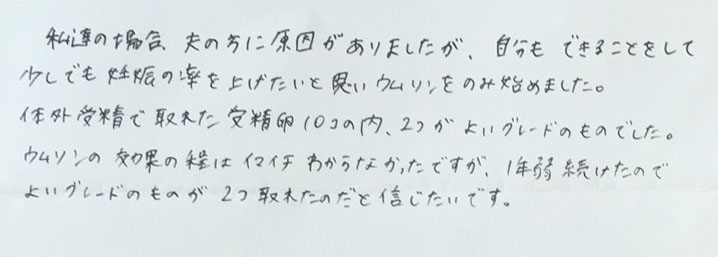 私達の場合、夫の方に原因がありましたが、自分もできることをして
少しでも妊娠の率を上げたいと思いウムリンをのみ始めました。
体外受精で取れた受精卵10コの内、2つがよいグレードのものでした。
ウムリンの効果の程はイマイチわからなかったですが、1年弱続けたので
よいグレードのものが2つ取れたのだと信じたいです。